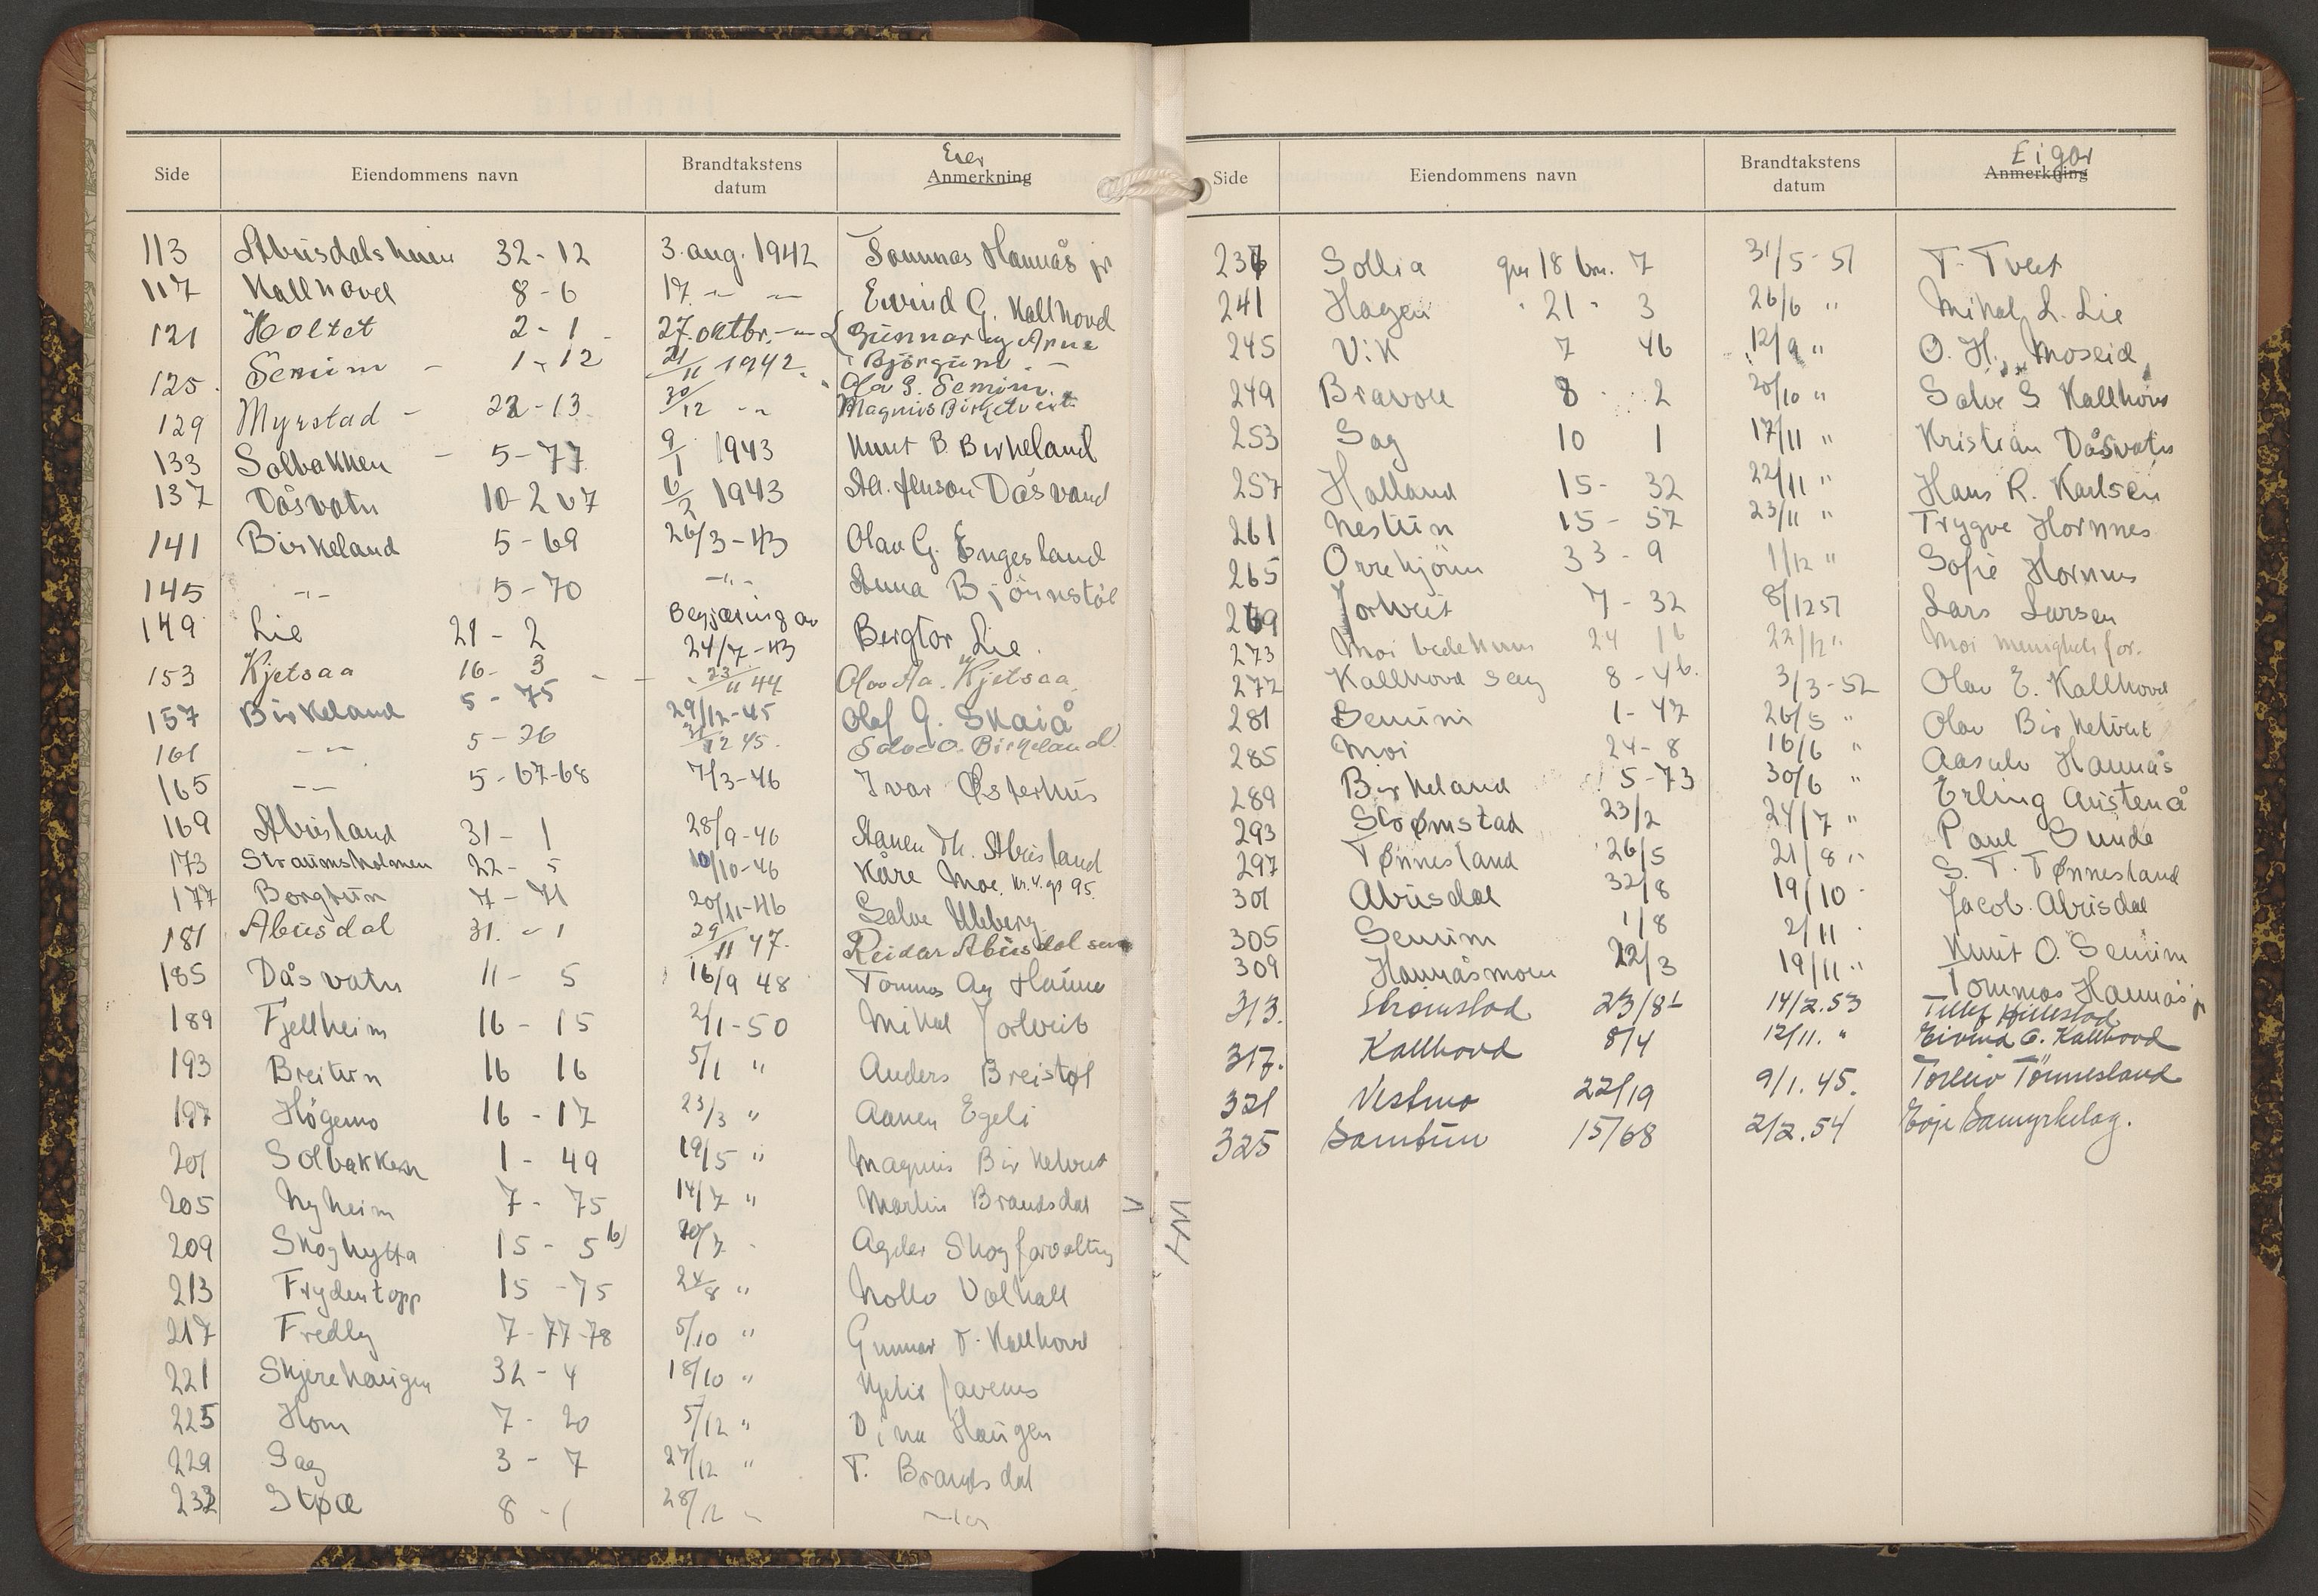 Side Eiendommens navn Brandtakstens datum Eier Anmerkning
113 Abusdalsheia 32-12 3. aug. 1942 Tommas Hannås jr
117 Kallhovd 8-6 17. -"- -"- Eivind G. Kallhovd
121 Holtet 2-1 27. oktbr. -"- Gunnar og Arne Bjørgum
125. Senum - 1-12 21/11 1942. Olav G. Senum.
129 Myrstad - 22-13 30/12 -"- Magnus Birketveit
133 Solbakken - 5-77 9/1 1943 Knut B. Birkeland
137 Dåsvatn 10-2 07 6/2 1943 Aa. Jenson Dåsvand
141 Birkeland 5-69 26/3-43 Olav G. Engesland
145 -"- 5-70 -"- Anna Bjørnstøl
149 Lie 21-2 Begjæring av 24/7-43 Bergtor Lie.
153 Kjetsaa 16-3 - - 23/11 44 Olav Aa. Kjetsaa
157 Birkeland 5-75 29/12-45 Olaf G. Skaiå
161 -"- 5-76 31/12 45. Salve O. Birkeland
165 -"- 5-67-68 7/3-46 Ivar Østerhus
169 Abusland 31-1 28/9-46 Aanen Th. Abusland
173 Straumsholmen 22-5 10/10-46 Kåre Moe. kr. v. gs 95.
177 Borgtun 7-71 20/11-46 Salve Uleberg
181 Abusdal 31.-1 29/11 47. Reidar Abusdal sen
185 Dåsvatn 11-5 16/9 48 Tommas Ag Hannås
189 Fjellheim 16-15 2/1-50 Mikal Jortveit
193 Breitun 16 16 5/1 " Anders Breistøl
197 Høgemo 16-17 23/3 " Aanen Egeli
201 Solbakken 1-49 19/5 " Magnus Birketveit
205 Nyheim 7-75 14/7 " Martin Brandsdal
209 Skoghytta 15-5 b) 20/7 - Agder Skogforvaltning
213 Frydentopp 15-75 24/8 " Valhall
217 Fredly 7-77-78 5/10 " Gunnar T. Kallhovd
221 Skjerehaugen 32-4 18/10 "
225 Hom 7-20 5/12 " Dina Haugen
229 Sag 3-7 27/12 " T. Brandsdal
232 Støa 8-1 28/12 " -"-
Side Eiendommens navn Brandtakstens datum Eigar Anmerkning
236 Sollia gnr 18 bnr. 7 31/5-51 T. Tveit
241 Hagen " 21 " 3 26/6 " Mikal L. Lie
245 Vik 7 46 12/9 " O. H. Moseid
249 Bravoll 8 2 20/10 " Salve S Kallhovd
253 Sag 10 1 17/11 " Kristian Dåsvatn
257 Halland 15-32 22/11 " Hans R. Karlsen
261 Nestun 15-57 23/11 " Trygve Hornnes
265 Orrehjønn 33-9 1/12 " Sofie Hornnes
269 Jortveit 7-32 8/12 51 Lars Larsen
273 Moi bedehus 24 16 22/12 " Moi menighets for.
277 Kallhovd sag 8-46. 3/3-52 Olav E. Kallhovd
281 Senum 1-47 26/5 " Olav Birketveit
285 Moi 24-8 16/6 " Aasulv Hannås
289 Birkeland 5-73 30/6 " Erling Austenå
293 Strømstad 23/2 24/7 " Paul Sunde
297 Tønnesland 26/5 21/8 " S. T. Tønnesland
301 Abusdal 32/8 19/10 - Jacob Abusdal
305 Senum 1/8 2/11 - Knut O. Senum
309 Hannåsmoen 22/3 19/11 " Tommas Hannås jr
313. Strømstad 23/8 14/2.53 Tellef Hillestad
317. Kallhovd 8/4 12/11. " Eivind G. Kallhovd
321 Vestmo 22/19 9/1. 45. Torleiv Tønnesland
325 Samtun 15/68 2/2.54 Evje Samyrkelag.